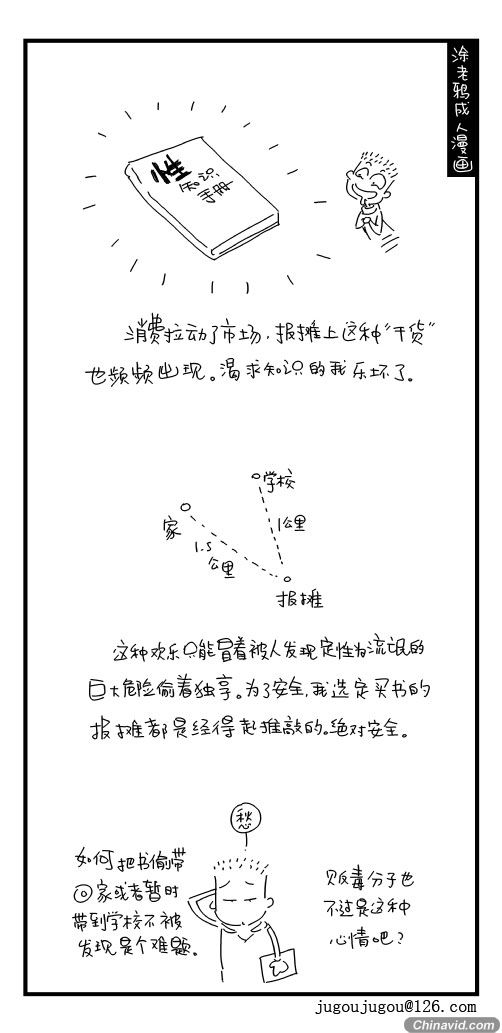 涂老鸦成人漫画
性
知识
手册
消费拉动了市场，报摊上这种“干货”
也频频出现。渴求知识的我乐坏了。
学校
家
1公里
1.5
公里
报摊
这种欢乐只能冒着被人发现定性为流氓的
巨大危险偷着独享。为了安全，我选定买书的
报摊都是经得起推敲的。绝对安全。
愁
如何把书偷带
回家或者暂时
带到学校不被
发现是个难题。
贩毒分子也
不过是这种
心情吧？
jugoujugou@126.com
Chinavid.com